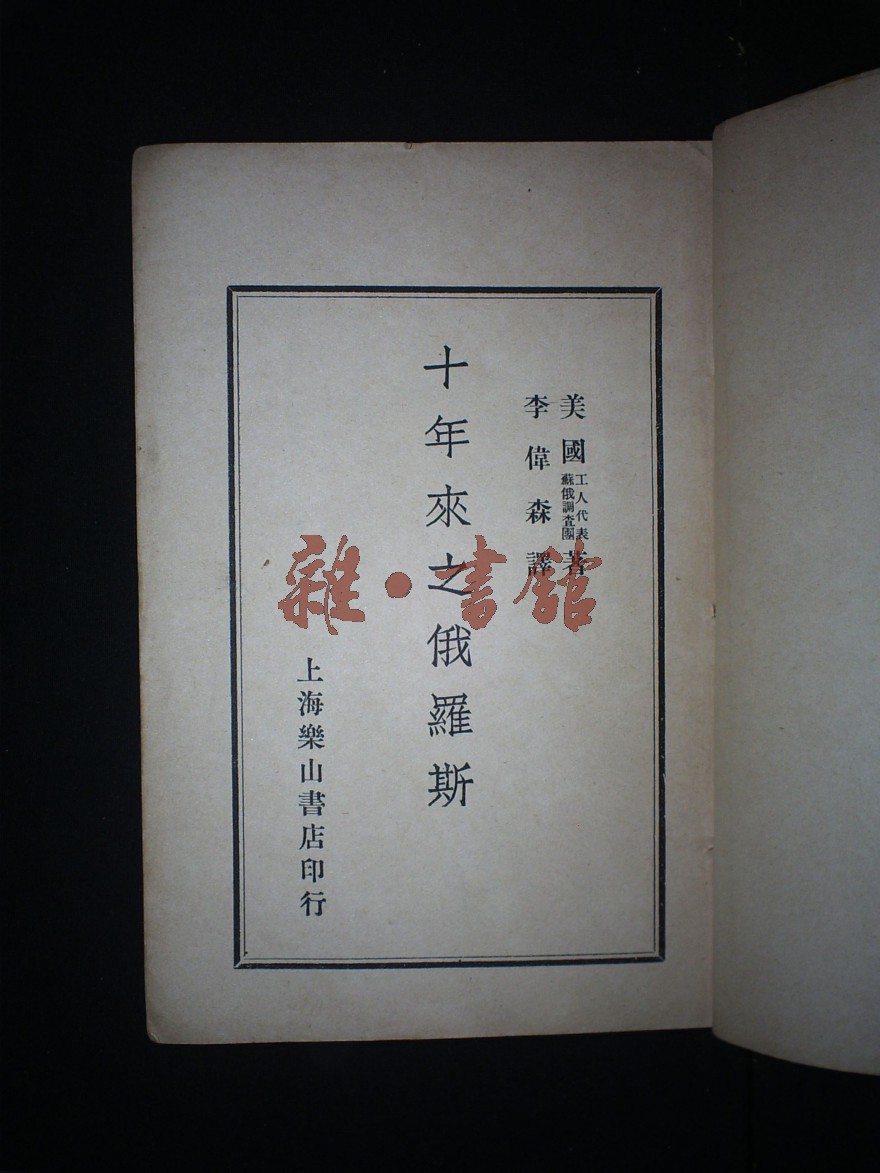 美國工人代表蘇俄調查團著
李偉森譯
十年來之俄羅斯
上海樂山書店印行
雜·書館